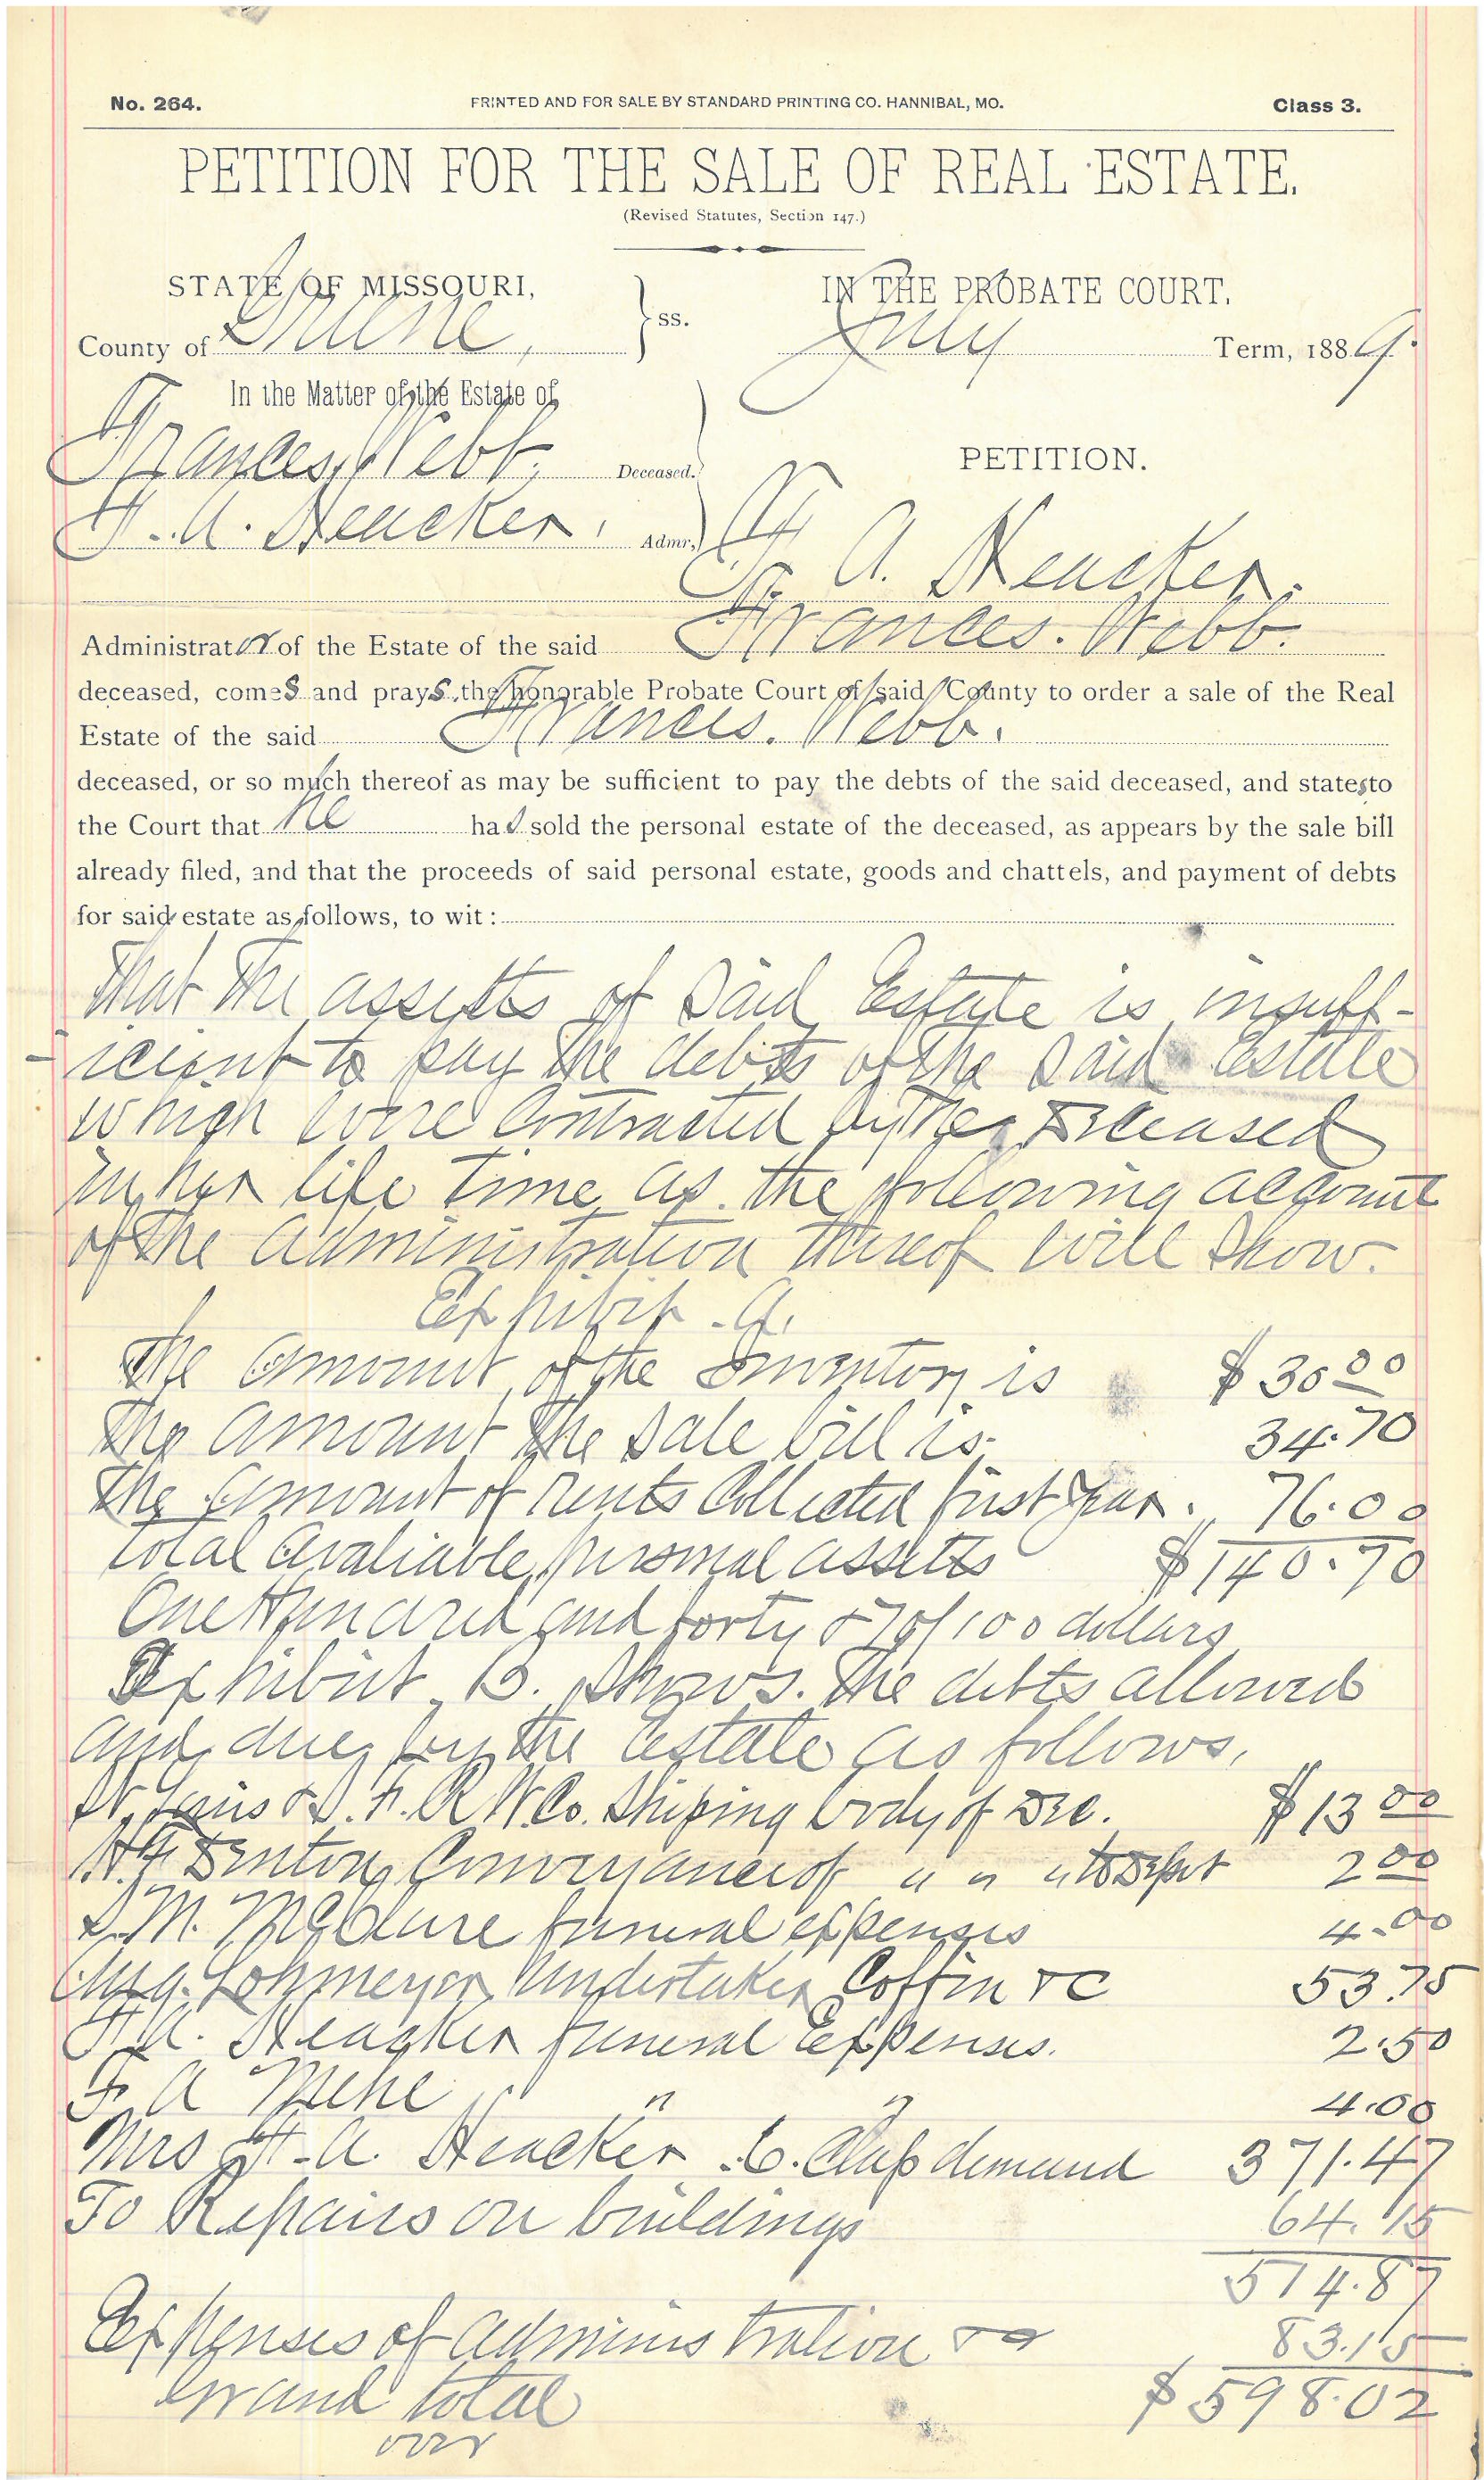 No. 264. PRINTED AND FOR SALE BY STANDARD PRINTING CO. HANNIBAL, MO. Class 3.
PETITION FOR THE SALE OF REAL ESTATE.
(Revised Statutes, Section 147.)
STATE OF MISSOURI, IN THE PROBATE COURT,
County of Greene, } ss. July Term, 1889.
In the Matter of the Estate of
Frances Webb, Deceased. PETITION.
F. A. Heacker, Admr,
F. A. Heacker.
Administrator of the Estate of the said Frances. Webb.
deceased, comes and prays the honorable Probate Court of said County to order a sale of the Real
Estate of the said Francis. Webb.
deceased, or so much thereof as may be sufficient to pay the debts of the said deceased, and states to
the Court that he has sold the personal estate of the deceased, as appears by the sale bill
already filed, and that the proceeds of said personal estate, goods and chattels, and payment of debts
for said estate as follows, to wit:
That the assetts of said Estate is insuff-
-icient to pay the debts of the said Estate
which were contracted by the deceased
in her life time as the following account
of the administration thereof will show.
Exhibit. A.
The amount of the Inventory is $ 30 00
The amount the sale bill is 34.70
The amount of rents Collected first year. 76.00
total avaliable personal assetts $140.70
One Hundred and forty & 70/100 dollars
Exhibit B. shows. the debts allowed
and due by the Estate as follows,
St Louis & S. F. R W. Co. Shiping body of Dec. $ 13 00
H. F. Denton Conveyance of " " " to Depot 2 00
S. M. McClure funeral expenses 4.00
Aug. Lohmeyer Undertaker Coffin &C 53.75
F. A. Heacker funeral Expenses. 2.50
F A " " 4.00
Mrs F. A. Heacker 6. Clas demand 371.47
To Repairs on buildings 64.15
514.87
Expenses of administration 83.15
Grand total $598.02
over